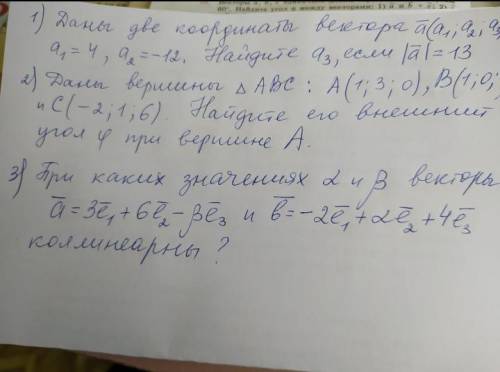 1) Даны две координаты вектора a̅(a₁; a₂, a₃
a₁ = 4, a₂ = -12. Найдите a₃, если |a̅| = 13
2) Даны вершины △ ABC : A(1; 3; 0), B(1; 0;
и C(-2; 1; 6). Найдите его внешний
угол φ при вершине A.
3) При каких значениях α и β векторы
a̅ = 3e̅₁ + 6e̅₂ - βe̅₃ и b̅ = -2e̅₁ + αe̅₂ + 4e̅₃
коллинеарны ?